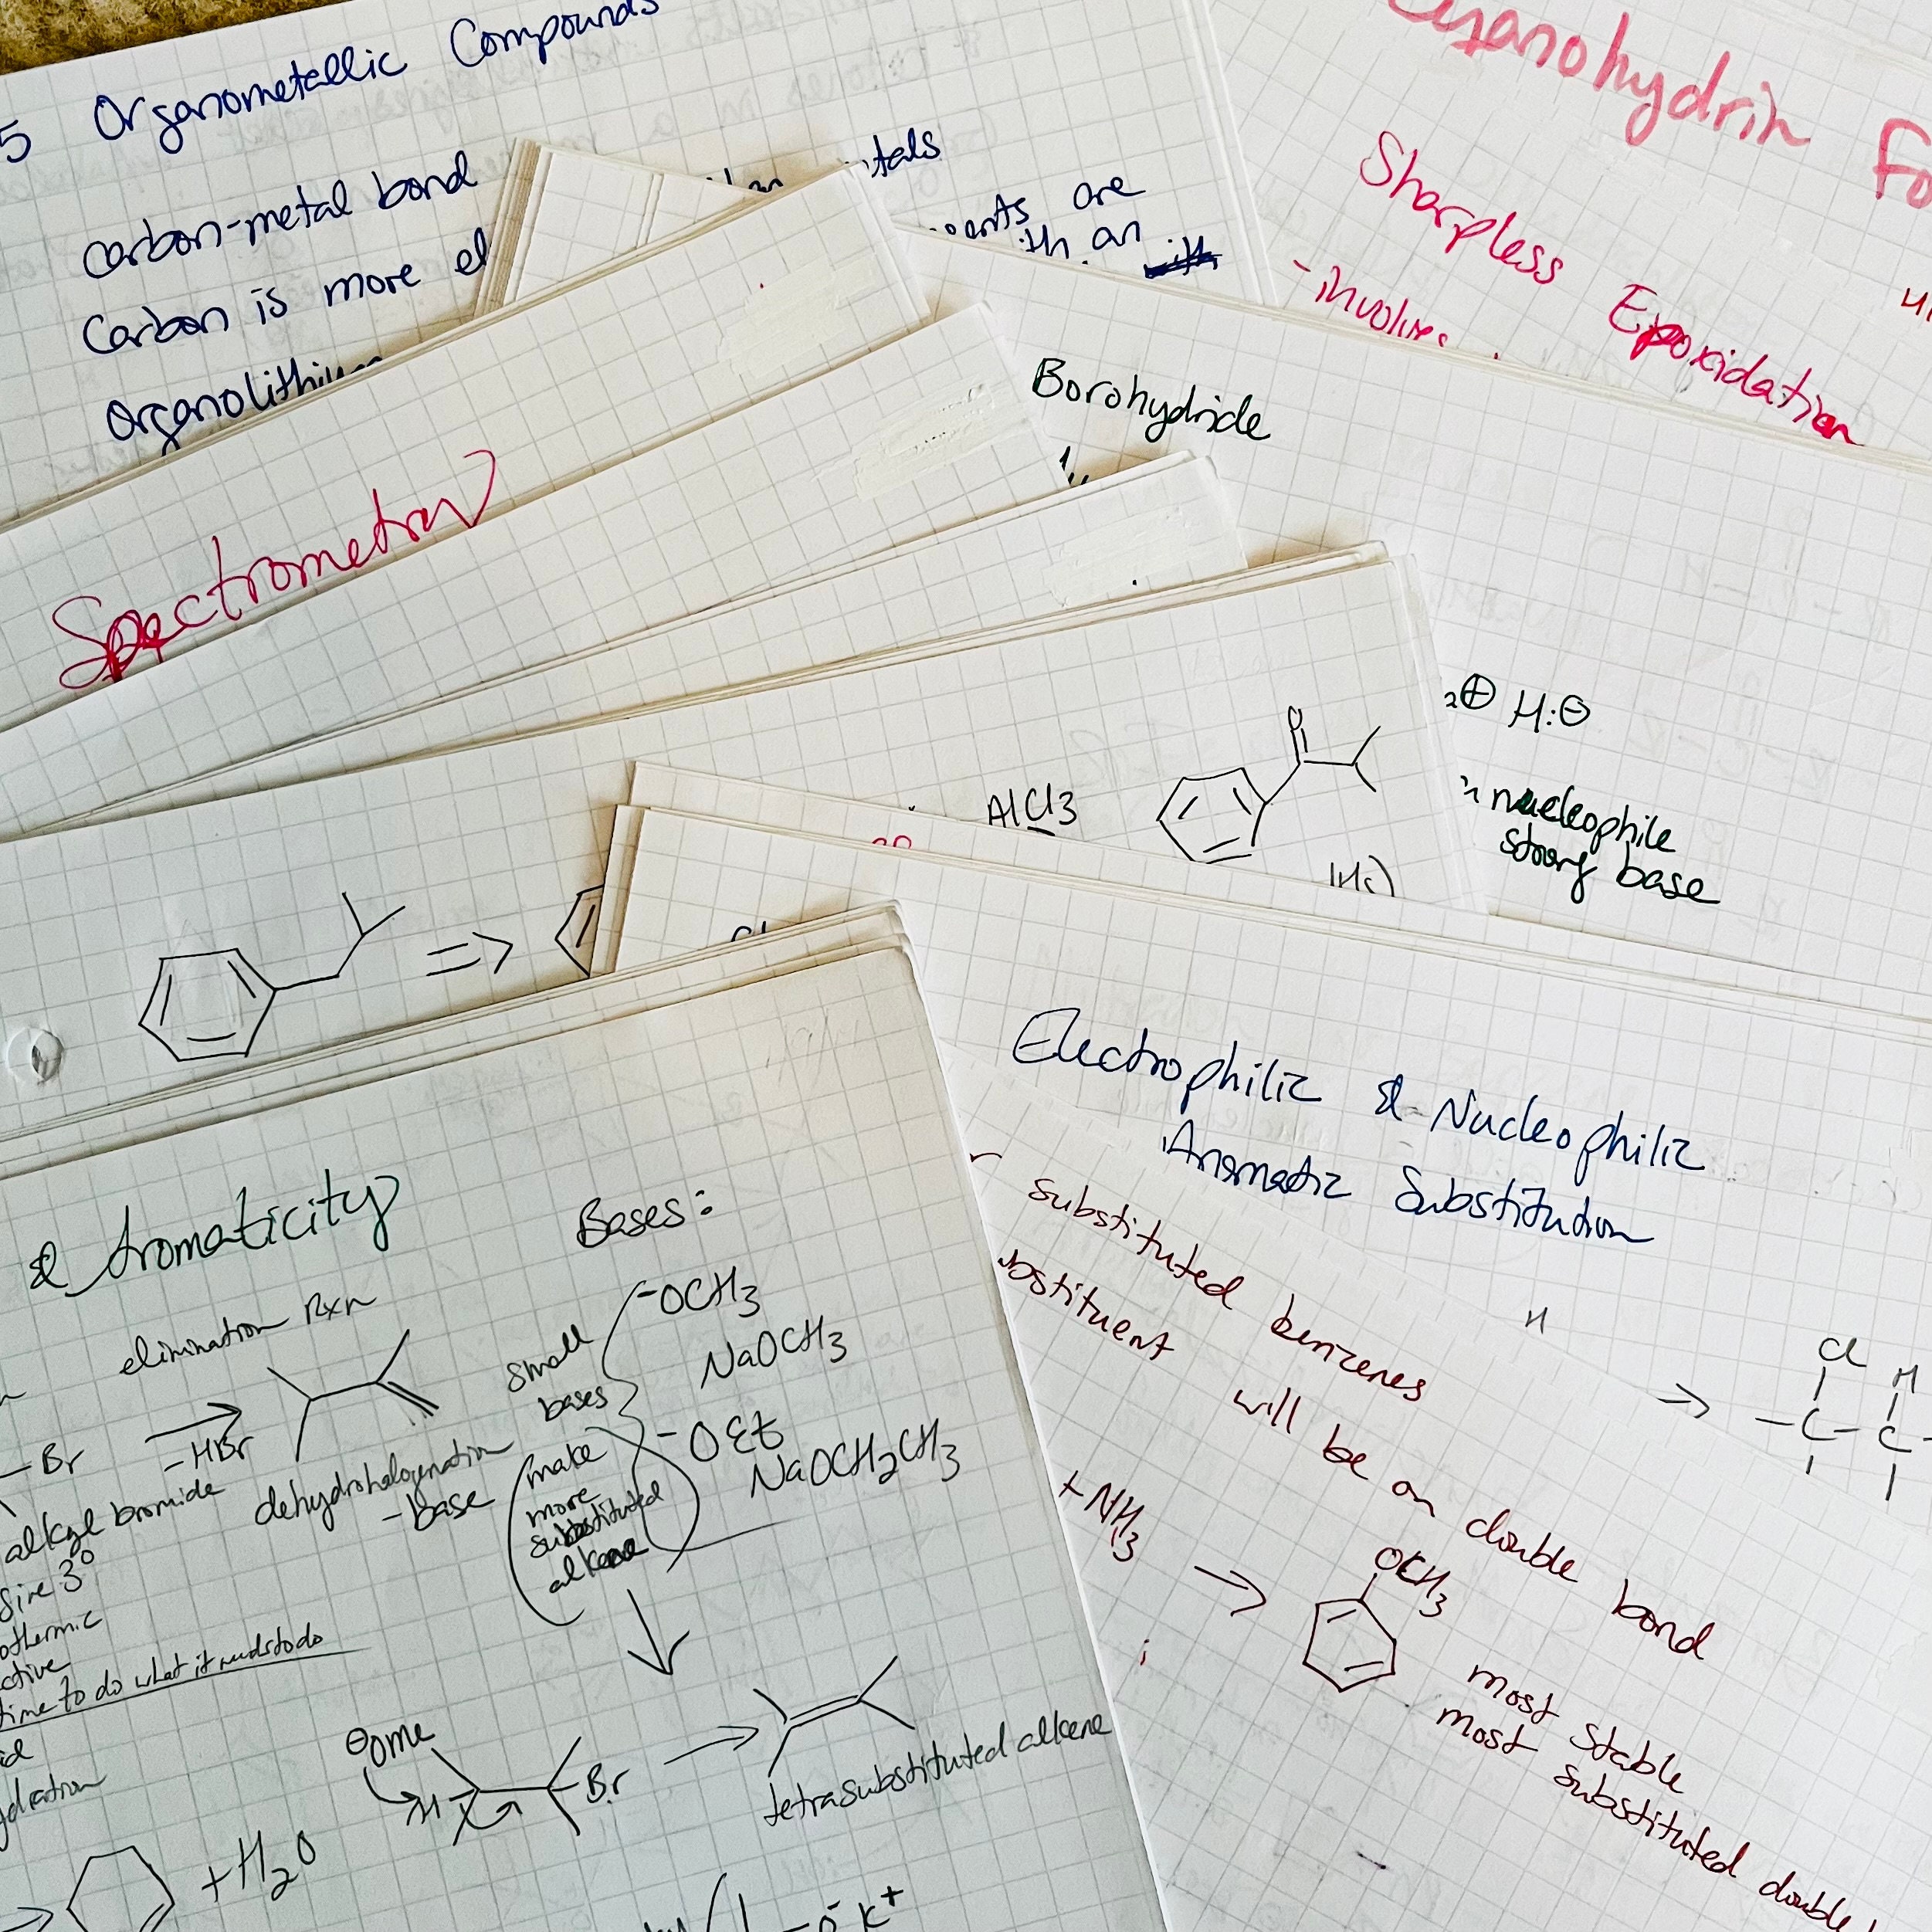 5 Organometallic Compounds
carbon-metal bond
tals
Carbon is more el
are
an
Organolithium
Cyanohydrin Fo
Sharpless Epoxidation
-involves
Borohydride
Spectrometry
⊕ H:⊖
nucleophile
strong base
AlCl3
O
=>
Electrophilic & Nucleophilic
Aromatic Substitution
substituted benzenes
bstituent will be on double bond
+NH3 →
OCH3
most stable
most substituted double
H
→
Cl H
-C-C-
& Aromaticity
elimination Rxn
Br
-HBr
alkyl bromide
dehydrohalogenation
-base
3°
othermic
ctive
time to do what it needs to do
id
ydration
+H2O
Bases:
small
bases
-OCH3
NaOCH3
-OEt
NaOCH2CH3
(make
more
substituted
alkene
⊖OMe
H
Br
tetrasubstituted alkene
-O- K+